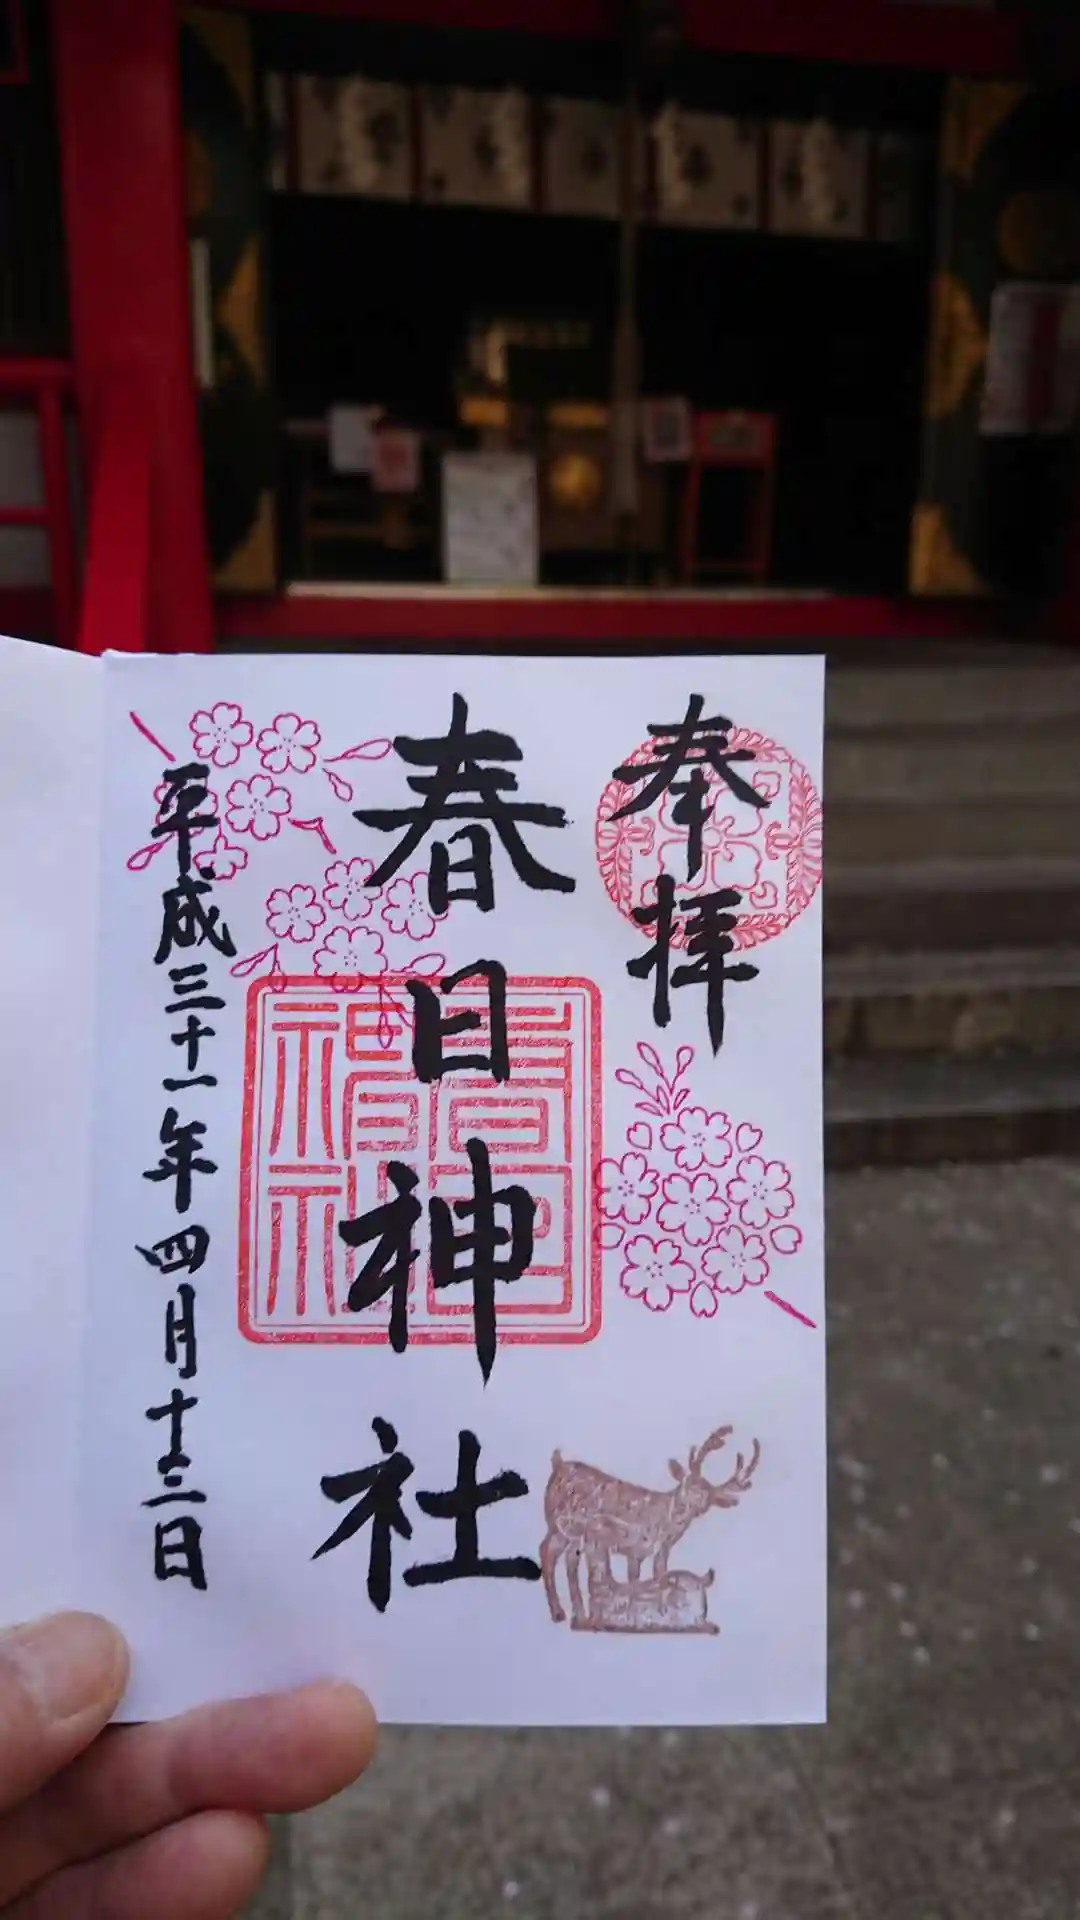 奉拝
春日神社
平成三十一年四月十三日